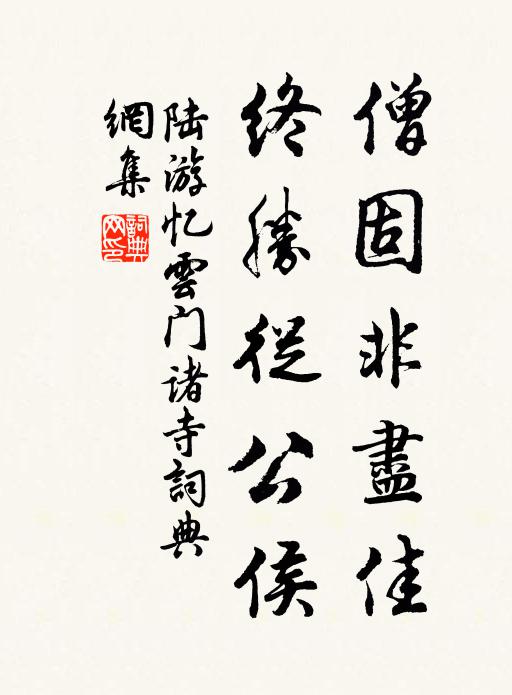 僧固非盡佳
終勝從公侯
陆游忆雲门诸寺詞典
網集
詞典
网印